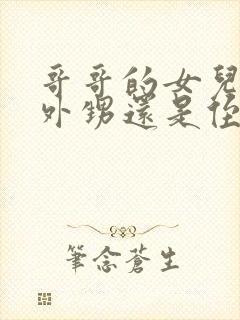 哥哥的女兒
外甥還是侄
筆念蒼生